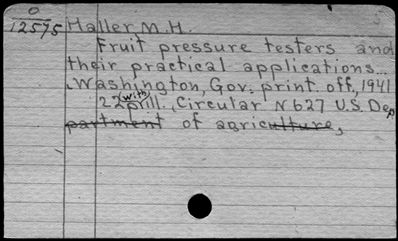 0
12575 Haller M. H.
Fruit pressure testers and
their practical applications...
Washington, Gov. print. off., 1941
22p (with) ill., Circular N 627 U.S. Dep
partment of agriculture,